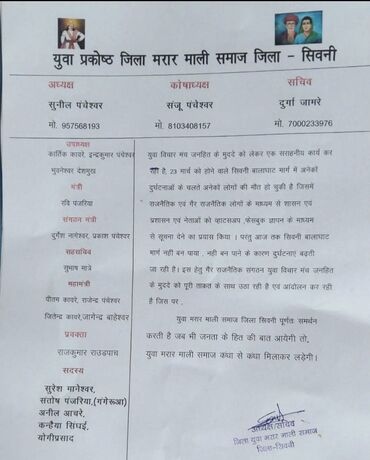 युवा प्रकोष्ठ जिला मरार माली समाज जिला - सिवनी
अध्यक्ष
सुनील पंचेश्वर
मो. 957568193
कोषाध्यक्ष
संजू पंचेश्वर
मो. 8103408157
सचिव
दुर्गा जामरे
मो. 7000233976
उपाध्यक्ष
कार्तिक कावरे, इन्द्रकुमार पंचेश्वर
भुवनेश्वर देशमुख
मंत्री
रवि पंजरिया
संगठन मंत्री
दुर्गेश नागेश्वर, प्रकाश पंचेश्वर
सहसचिव
सुभाष मात्रे
महामंत्री
पीतम कावरे, राजेन्द्र पंचेश्वर
जितेन्द्र कावरे, जागेन्द्र बाहेश्वर
प्रवक्ता
राजकुमार राउडपाच
सदस्य
सुरेश गानेश्वर,
संतोष पंजरिया,(गंगेरूआ)
अनील आचरे,
कन्हैया सिंघई,
योगीप्रसाद
युवा विचार मंच जनहित के मुददे को लेकर एक सराहनीय कार्य कर
रहा है, 23 मार्च को होने वाले सिवनी बालाघाट मार्ग में अनेकों
दुर्घटनाओं के चलते अनेको लोगों की मौत हो चुकी है जिसमें
राजनैतिक एंव गैर राजनैतिक लोगों के माध्यम से शासन एवं
प्रशासन एवं नेताओं को व्हाटसअप, फेसबुक ज्ञापन के माध्यम
से सूचना देने का प्रयास किया । परन्तु आज तक सिवनी बालाघाट
मार्ग नही बन पाया . नही बन पाने के कारण दुर्घटनाए बढ़ती
जा रही है। इस हेतु गैर राजनैतिक संगठन युवा विचार मंच जनहित
के मुददे को पूरी ताक़त के साथ उठा रही है एवं आंदोलन कर रही
है जिस पर .
युवा मरार माली समाज जिला सिवनी पूर्णतः समर्थन
करती है जब भी जनता के हित की बात आयेगी तो,
युवा मरार माली समाज कंधा से कंधा मिलाकर लड़ेगी।
अध्यक्ष/सचिव
जिला युवा मरार माली समाज
जिला-सिवनी